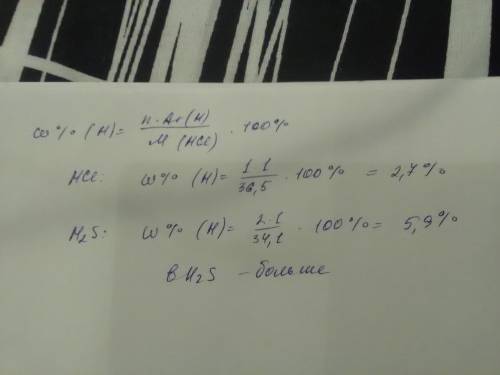 ω% (H) = n·Ar(H) / M (HCl) · 100%
HCl: ω% (H) = 1·1 / 36,5 · 100% = 2,7%
H₂S: ω% (H) = 2·1 / 34,1 · 100% = 5,9%
в H₂S – больше